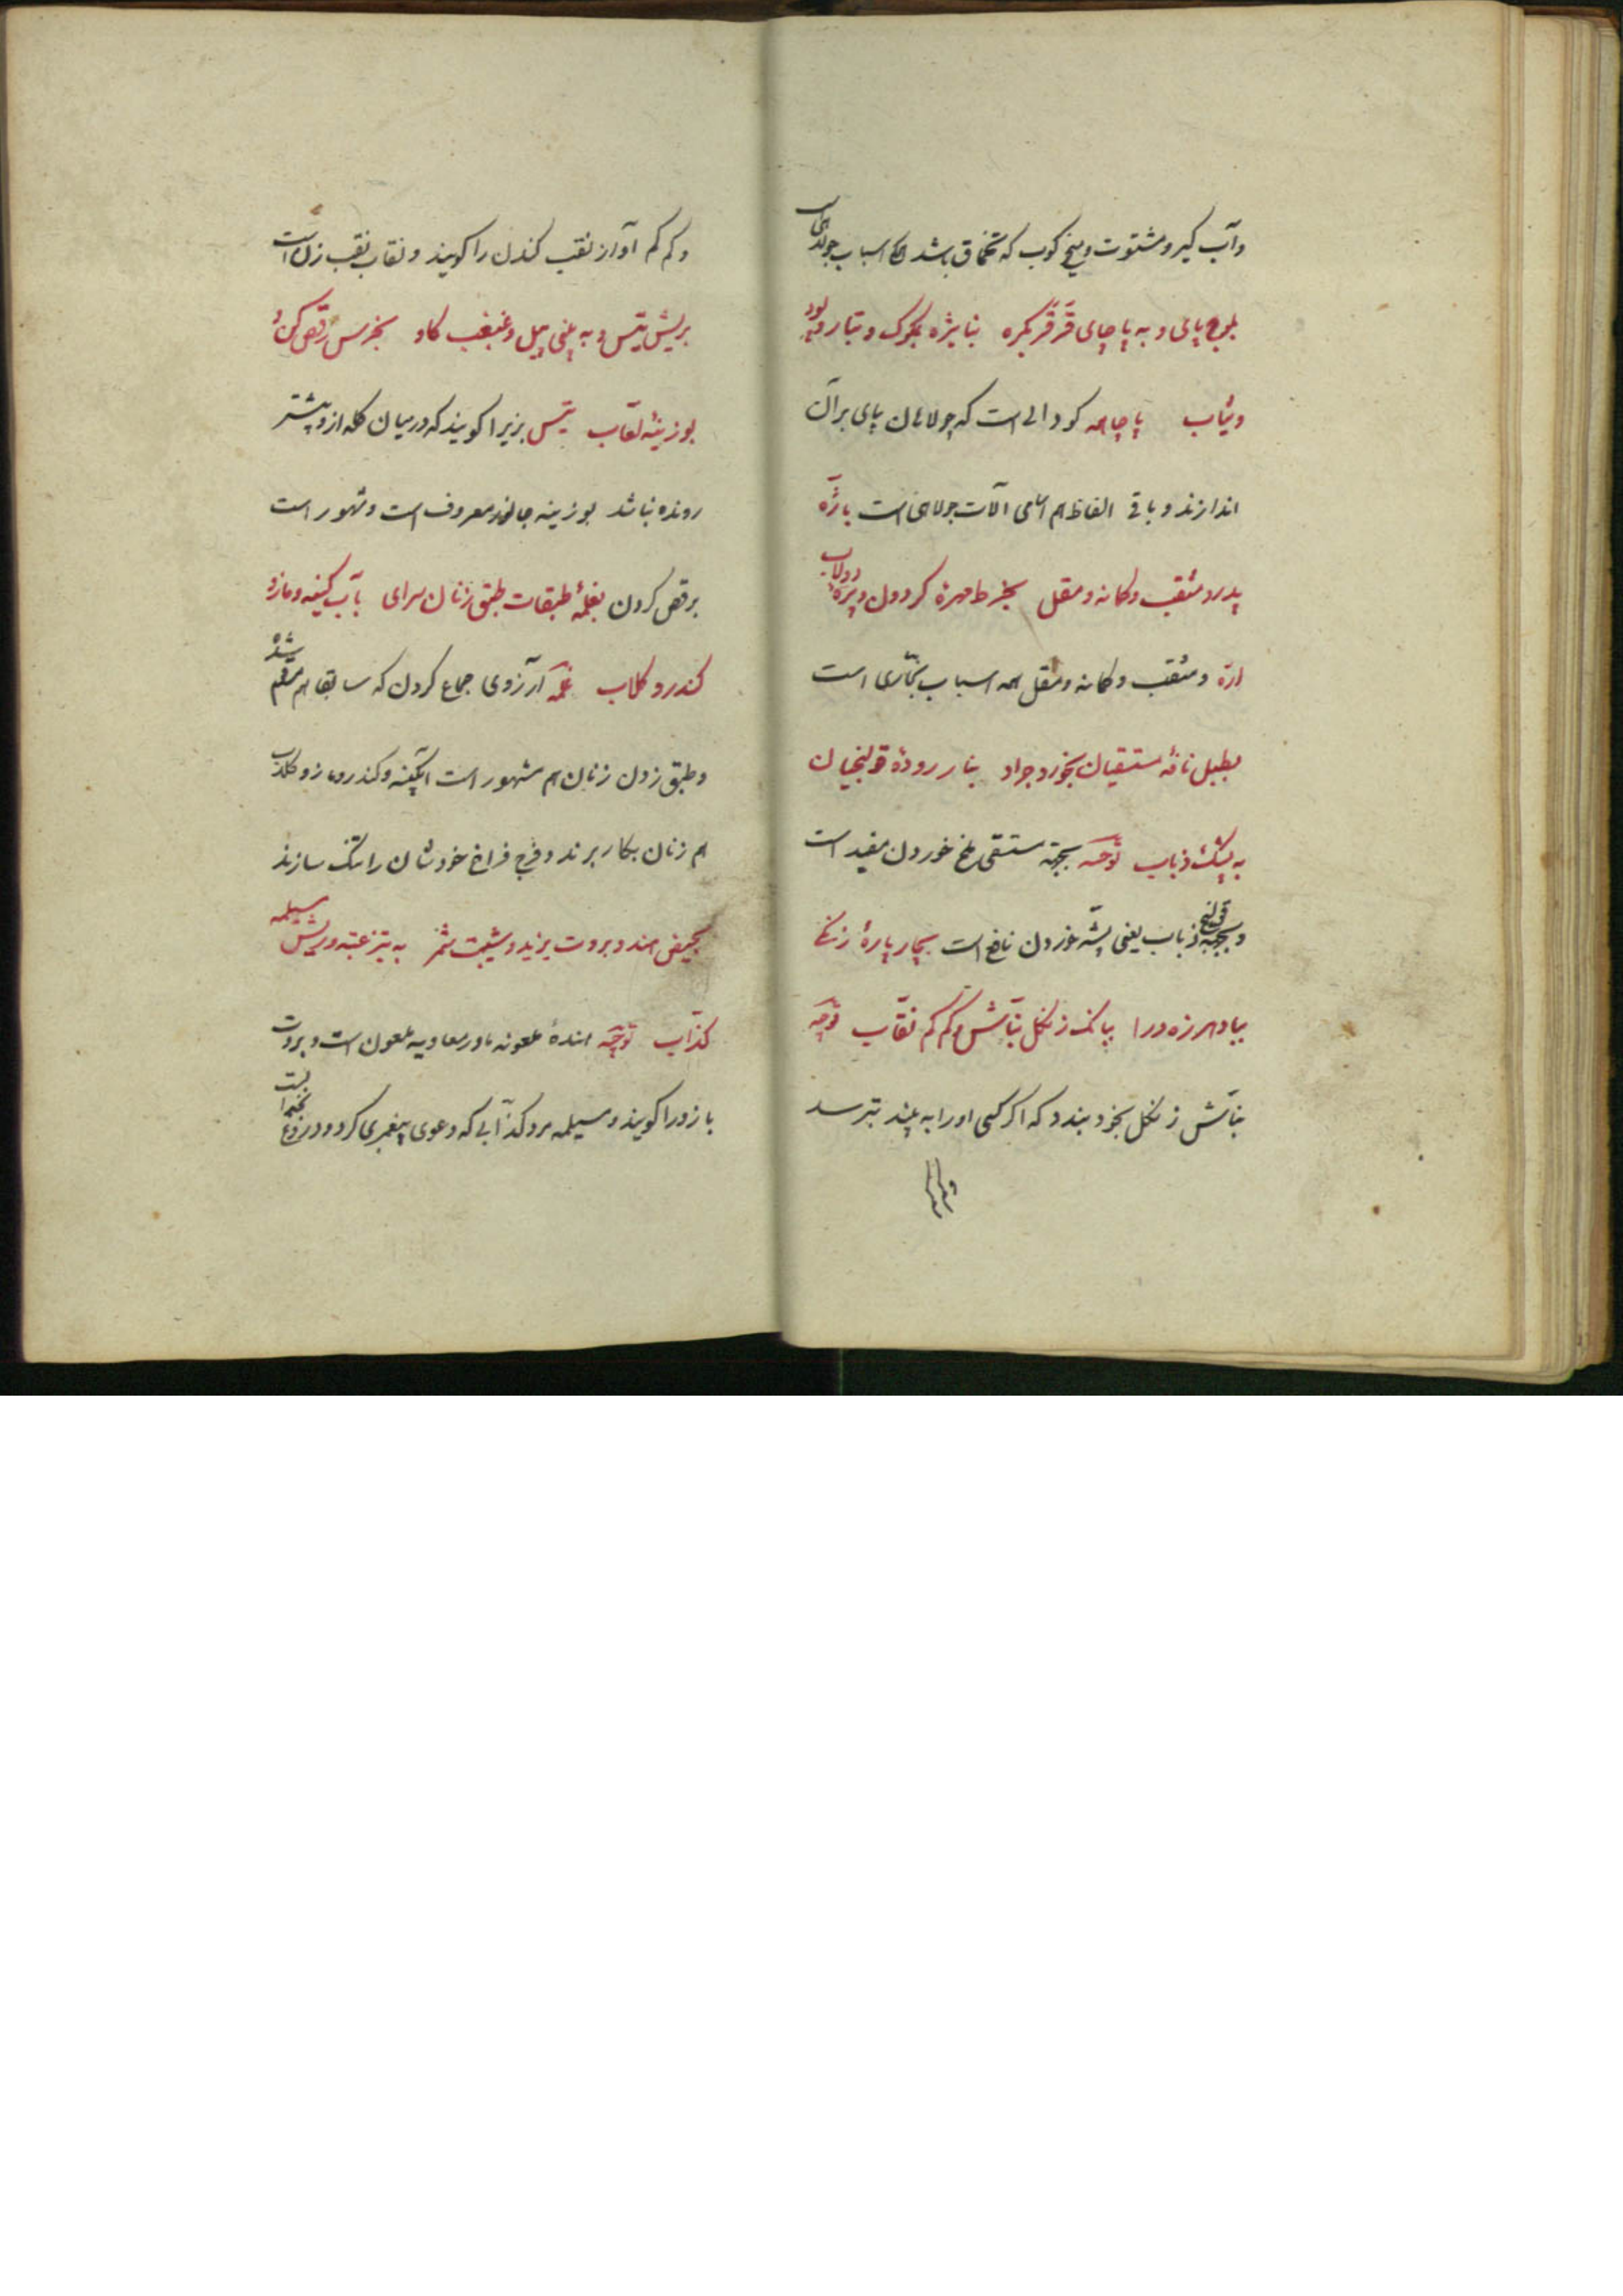 وآب گیر و مشتوت و میخ کوب که تخماق باشد اسباب جولاهی است
بلوح پای و به پاچای قرقر بکره بنایژه بکوک و بتار و پود
وثیاب پاچاهه کودالی است که جولاهان پای بر آن
اندازند و باقی الفاظ هم اسامی آلات جولاهی است بارّه
پدرد مثقب و کمانه و مقل بخرط مهرهٔ کردون و پرهٔ دولاب
ارّه و مثقب و کمانه و مقل همه اسباب نجّاری است
بطبل نافهٔ مستسقیان بخورد جراد بنار رودهٔ قولنجیان
به پشک ذباب توجیه بجهة مستسقی ملخ خوردن مفید است
و بجهة قولنج ذباب یعنی پشه خوردن نافع است بچار پارهٔ زنکی
بباد هرزه درا ببانک زنکل نبّاش و کم کم نقّاب توجیه
نبّاش زنکل بخود بندد که اکر کسی او را به بیند بترسد
و کم کم آواز نقب کندن را کویند و نقاب نقب زن است
بریش تیس و به بینی پیل و غبغب کاو بخرس رقص کن و
بوزینهٔ لعّاب تیس بزیرا کویند که در میان کله از و پیشتر
رونده نباشد بوزینه جانور معروف است و مشهور است
برقص کردن بغلمهٔ طبقات طبق زنان سرای بآب کینه و مازو
کندر و کلاب غلمه آرزوی جماع کردن که سابقا هم مرقوم شد
و طبق زدن زنان هم مشهور است آبکینه و کندر و مازو و کلاب
هم زنان بکار برند و فرج فراخ خودشان را تنک سازند
بحیض هند و بروت یزید و شیبت شمر به تیز عتبه و ریش مسیلمه
کذّاب توجیه هندهٔ ملعونه مادر معاویه ملعون است و بروت
باز و را کویند و مسیلمه مرد کذّابی که دعوی پیغمبری کرد و دروغ